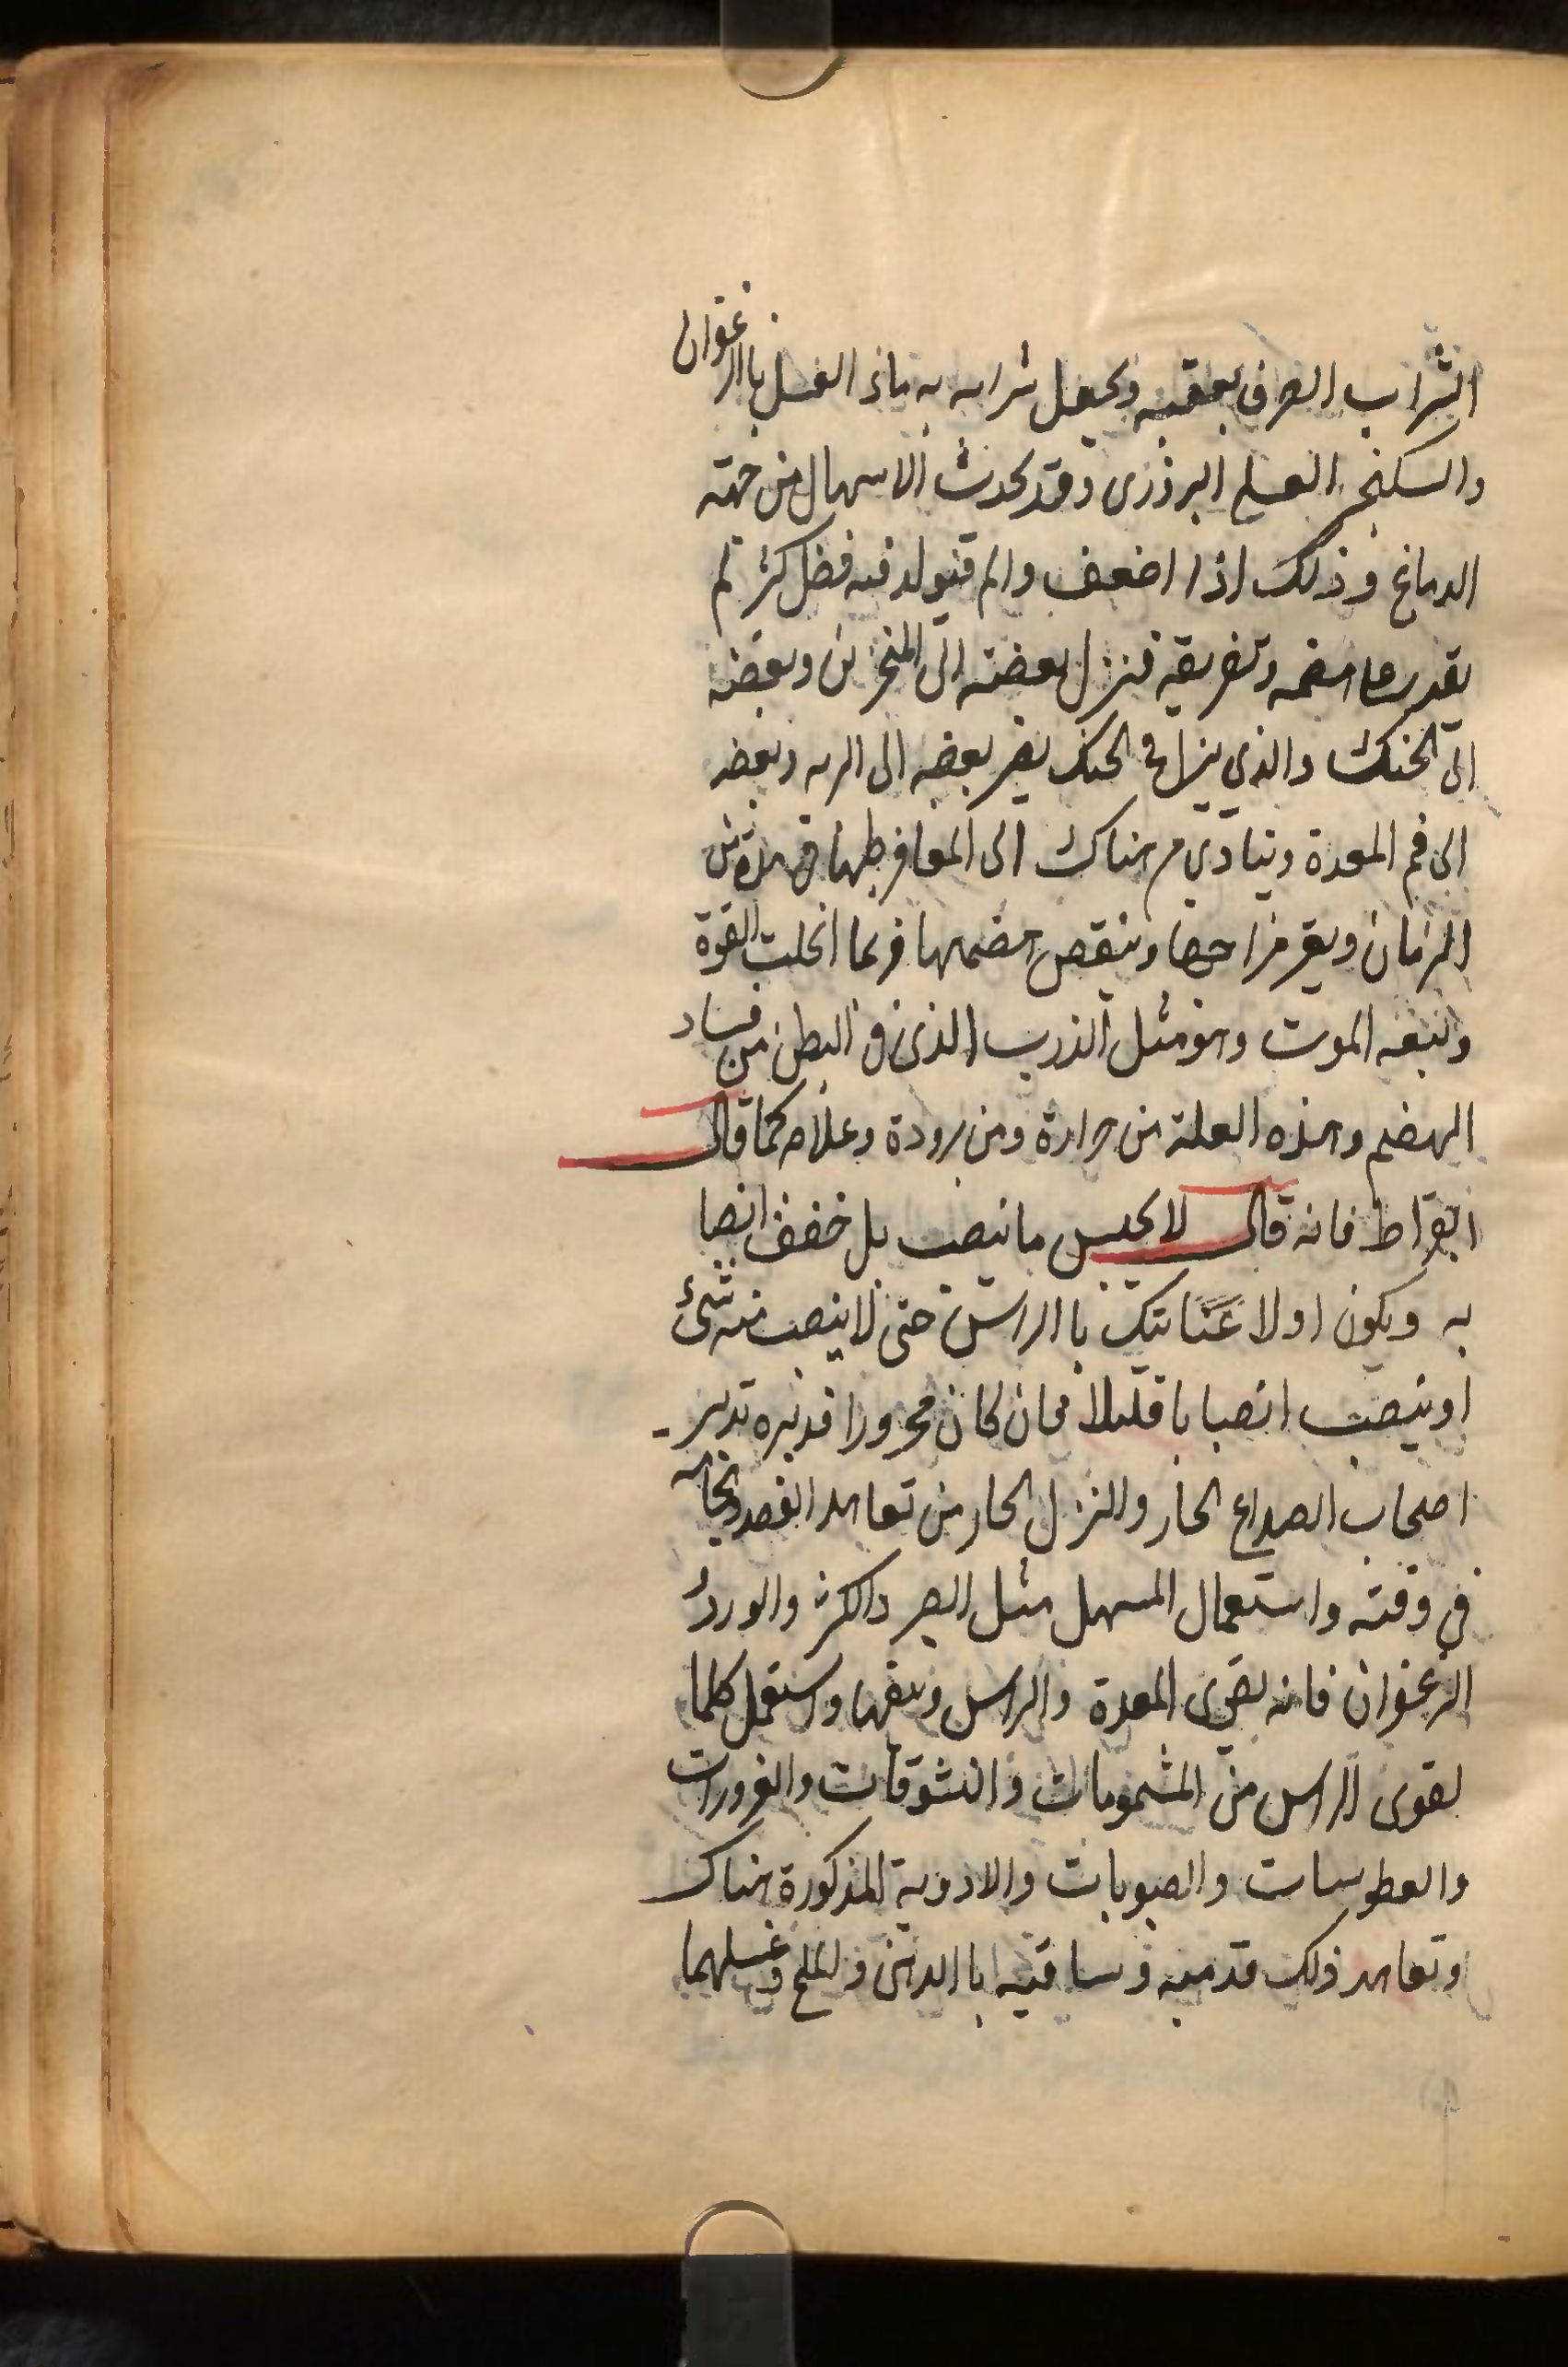 الشراب الصرف بعقبه ويجعل شرابه به ماء العسل باالزعفران
والسكنجبر العسلي البرزرى وقد يحدث الاسهال من جهته
الدماغ وذلك اذا اضعف والم فتولد فيه فضل كثر لم
يقدر على هضمه وتفريقه فنزل بعضه الى المنخرين وبعضه
الى الحنك والذي ينزل في الحنك يصر بعضه الى الريه وبعضه
الى فم المعدة ويتادي م هناك الى المعا فرطبها في مدة من
الزمان ويغر مزاجها وينقص هضمها فربما انحلت القوة
وتبعه الموت وهو مثل الذرب الذى في البطن من فساد
الهضم وهذه العلة من حرارة ومن برودة وعلام كما قال
ابقراط فانه قال لا تحبس ما ينصب بل خفف انصا
به ويكون اولا عنايتك باالراس حتى لا ينصب منه شئ
او ينصب انصبابا قليلا فان كان محرورا فدبره تدبير
اصحاب الصداع الحار والنزل الحار من تعاهد الفصد
في وقته واستعمال المسهل مثل الصر والكثر والورد
الزعفران فانه يقوى المعدة والراس وينقها واستعمل كلما
يقوى الراس من المشمومات والنشوقات والغرورات
والعطوسات والصبوبات والادوية المذكورة هناك
وتعاهد ذلك قدميه وساقيه باالدهن والملح وغسلهما